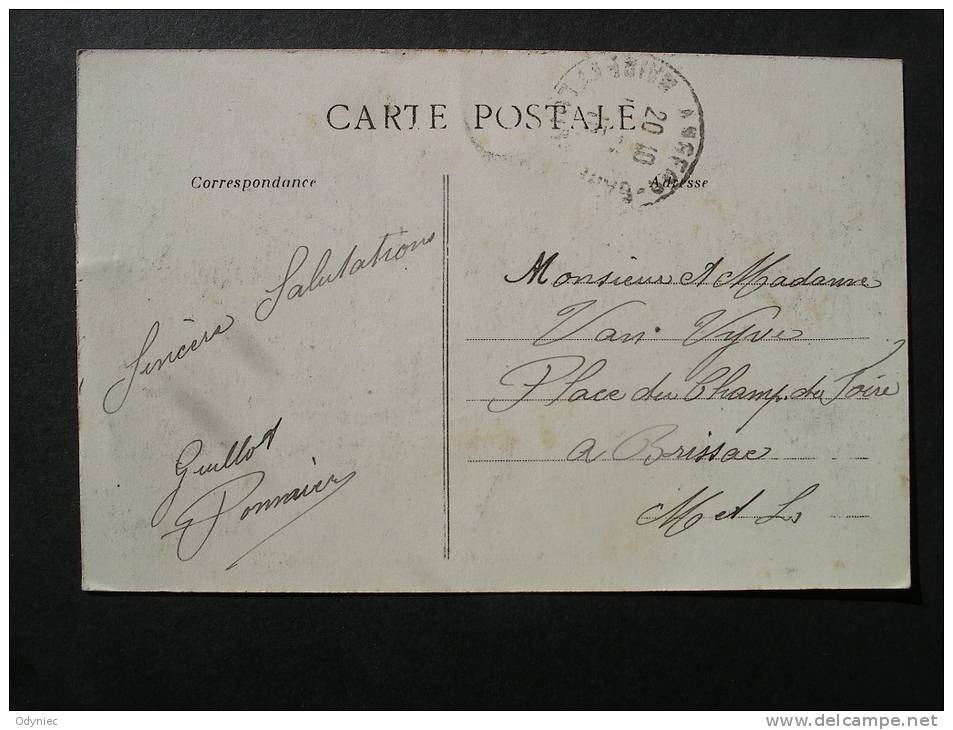 CARTE POSTALE
Correspondance
Adresse
ANGERS-GARE
20 40
Sincères Salutations
Guillot
Monsieur et Madame
Van Vyve
Place du Champ de Foire
a Brissac
M et L
Odyniec
www.delcampe.net